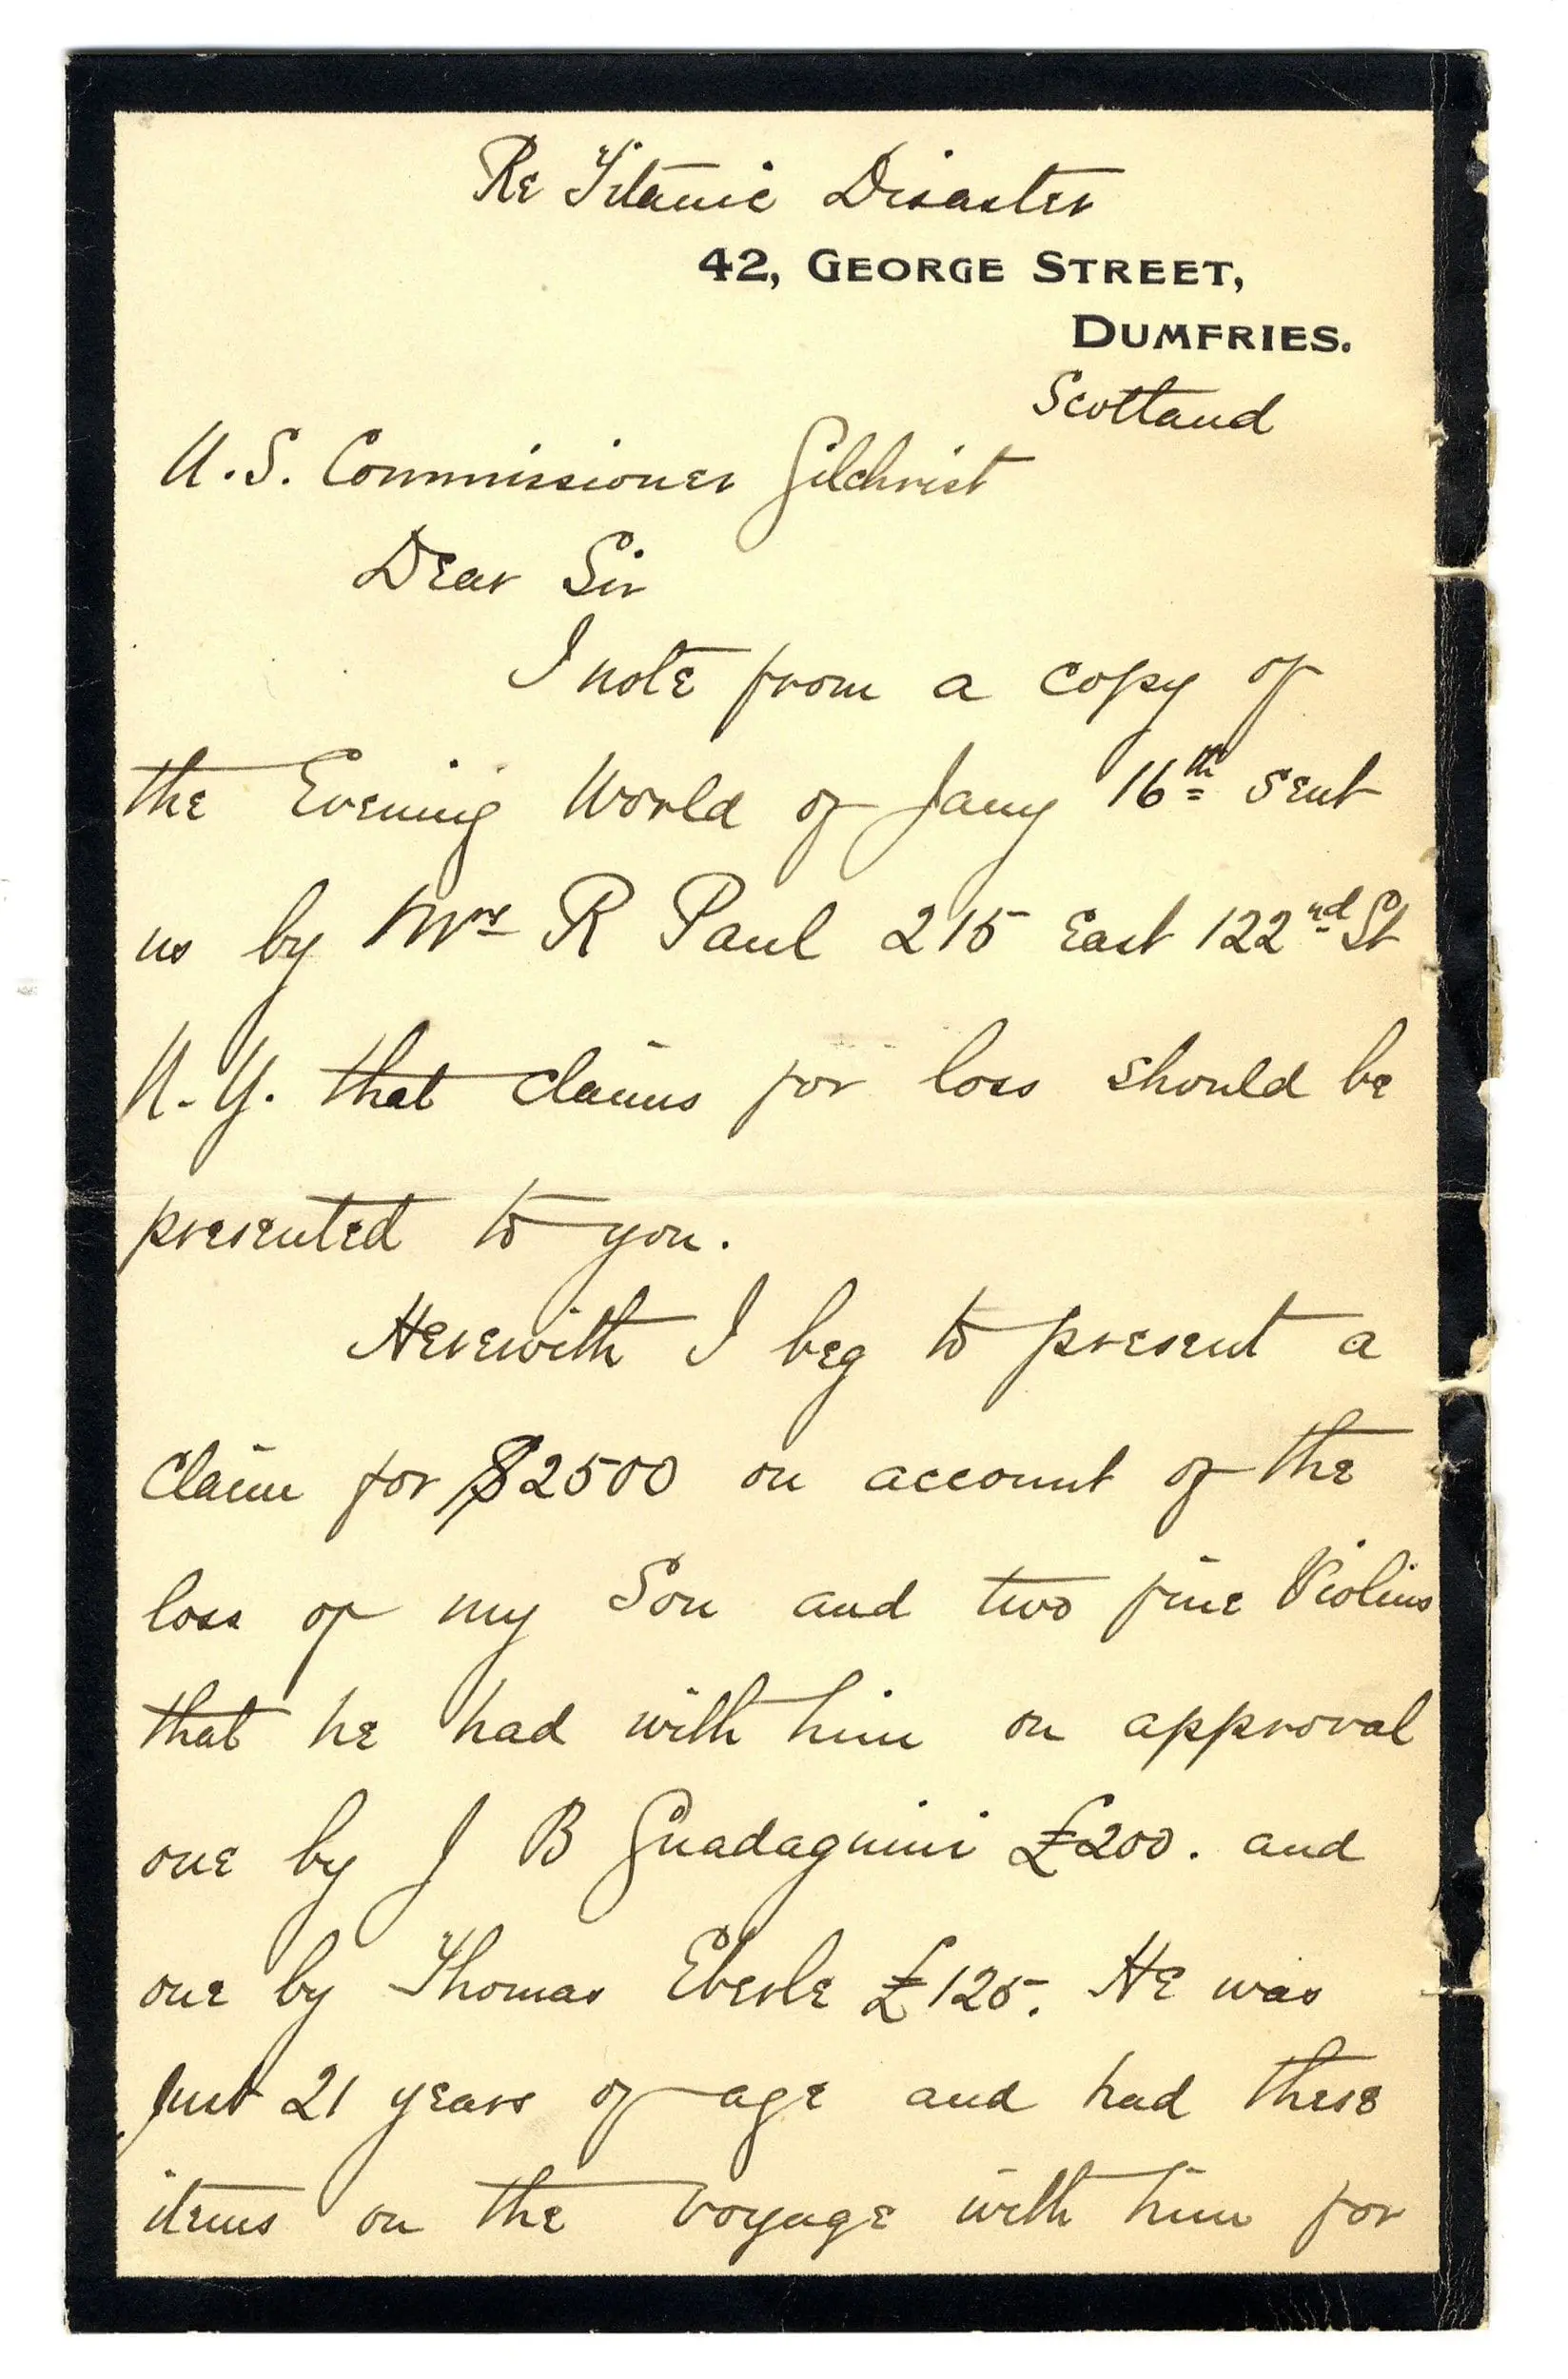 Re Titanic Disaster
42, GEORGE STREET,
DUMFRIES.
Scotland
U.S. Commissioner Gilchrist
Dear Sir
I note from a copy of
the Evening World of Jany 16th sent
us by Mrs R Paul 215 East 122nd St
N.Y. that claims for loss should be
presented to you.
Herewith I beg to present a
claim for $2500 on account of the
loss of my Son and two fine Violins
that he had with him on approval
one by J B Guadagnini £200. and
one by Thomas Eberle £125. He was
just 21 years of age and had these
items on the voyage with him for